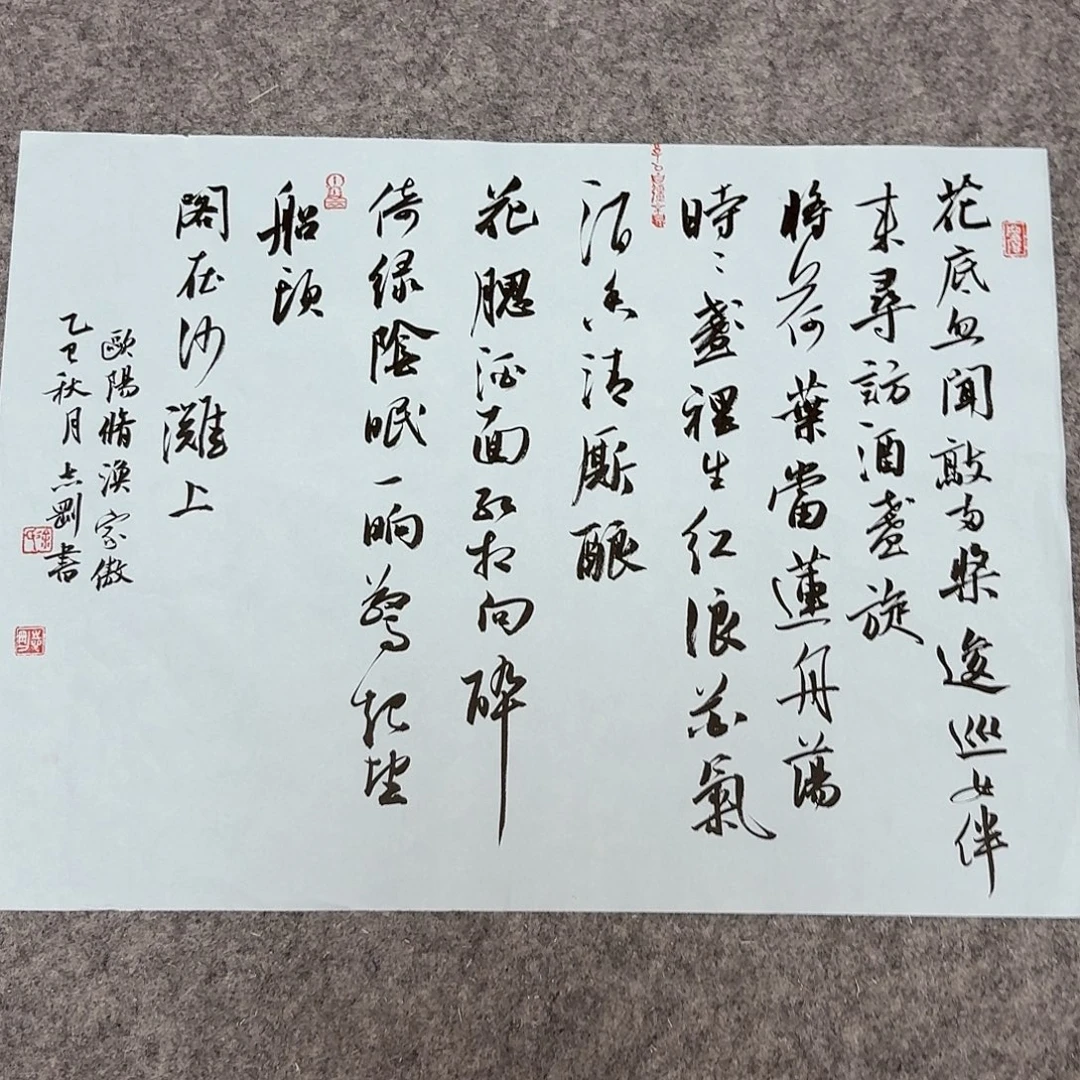 花底忽聞敲兩槳逡巡女伴
来尋訪酒盞旋
將荷葉當蓮舟蕩
時〻盞裡生红浪花氣
酒香清厮酿
花腮酒面红相向醉
倚绿陰眠一晌驚起望
船頭
閣在沙灘上
歐陽脩漁家傲
乙巳秋月志剛書